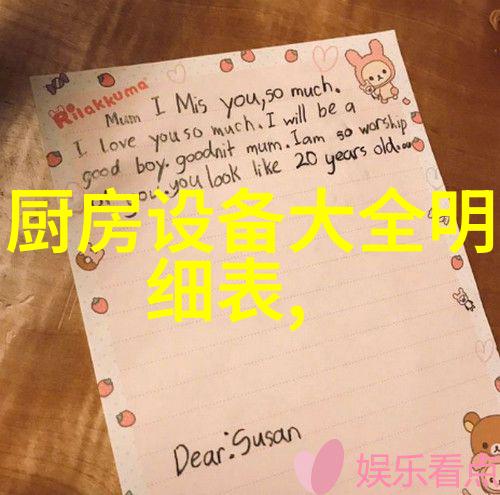 Rilakkuma
Mum I Mis you, so much.
I love you so much. I will be a
good boy. goodnit mum. I am so worship
you. you look like 20 years old.
厨房设备大全明
细表,
Dear: Susan
娱乐看点